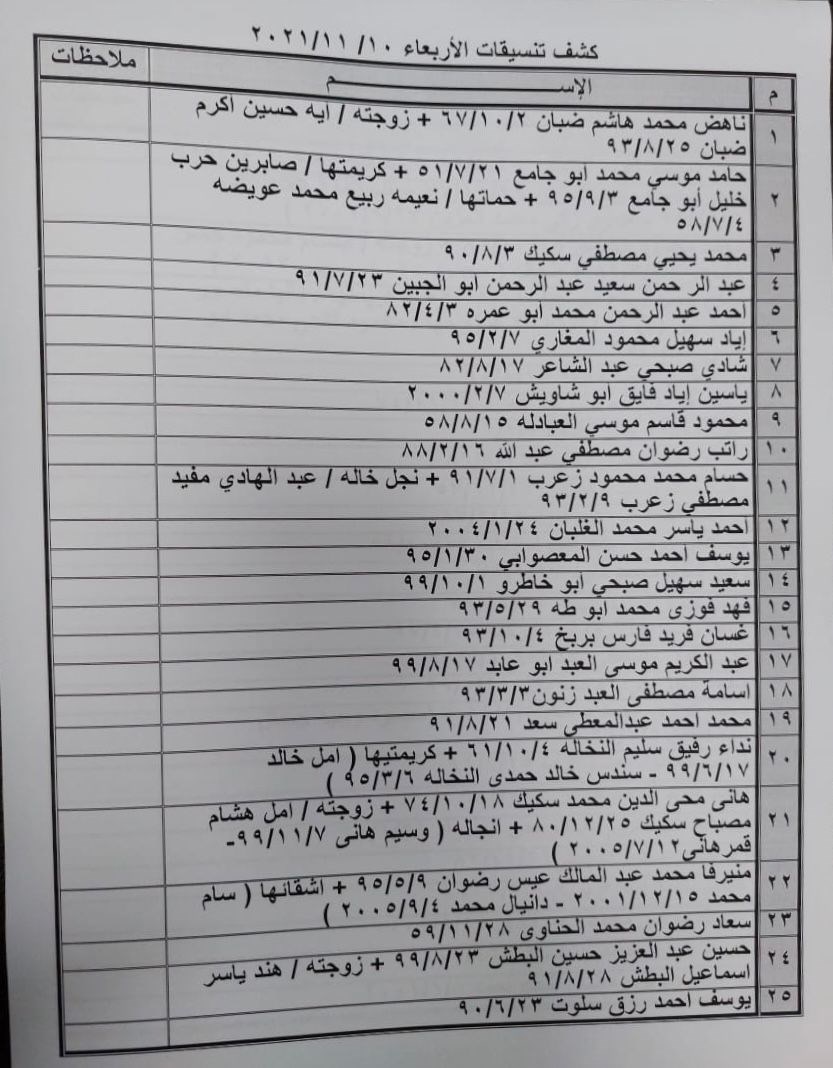 كشف تنسيقات الأربعاء ١٠/ ٢٠٢١/١١
م الإســـــــــــــــم ملاحظات
١ ناهض محمد هاشم ضبان ٦٧/١٠/٢ + زوجته / ايه حسين اكرم
ضبان ٩٣/٨/٢٥
٢ حامد موسي محمد ابو جامع ٥١/٧/٢١ + كريمتها / صابرين حرب
خليل أبو جامع ٩٥/٩/٣ + حماتها / نعيمه ربيع محمد عويضه
٥٨/٧/٤
٣ محمد يحيي مصطفي سكيك ٩٠/٨/٣
٤ عبد الر حمن سعيد عبد الرحمن ابو الجبين ٩١/٧/٢٣
٥ احمد عبد الرحمن محمد ابو عمره ٨٢/٤/٣
٦ إياد سهيل محمود المغاري ٩٥/٢/٧
٧ شادي صبحي عبد الشاعر ٨٢/٨/١٧
٨ ياسين إياد فايق ابو شاويش ٢٠٠٠/٢/٧
٩ محمود قاسم موسي العبادله ٥٨/٨/١٥
١٠ راتب رضوان مصطفي عبد الله ٨٨/٢/١٦
١١ حسام محمد محمود زعرب ٩١/٧/١ + نجل خاله / عبد الهادي مفيد
مصطفي زعرب ٩٣/٢/٩
١٢ احمد ياسر محمد الغلبان ٢٠٠٤/١/٢٤
١٣ يوسف احمد حسن المعصوابي ٩٥/١/٣٠
١٤ سعيد سهيل صبحي ابو خاطرو ٩٩/١٠/١
١٥ فهد فوزى محمد ابو طه ٩٣/٥/٢٩
١٦ غسان فريد فارس بربخ ٩٣/١٠/٤
١٧ عبد الكريم موسى العبد ابو عابد ٩٩/٨/١٧
١٨ اسامة مصطفى العبد زنون٩٣/٣/٣
١٩ محمد احمد عبدالمعطى سعد ٩١/٨/٢١
٢٠ نداء رفيق سليم النخاله ٦١/١٠/٤ + كريمتيها ( امل خالد
٩٩/٦/١٧ - سندس خالد حمدى النخاله ٩٥/٣/٦ )
٢١ هانى محى الدين محمد سكيك ٧٤/١٠/١٨ + زوجته / امل هشام
مصباح سكيك ٨٠/١٢/٢٥ + انجاله ( وسيم هانى ٩٩/١١/٧-
قمرهانى٢٠٠٥/٧/١٢ )
٢٢ منيرفا محمد عبد المالك عيس رضوان ٩٥/٥/٩ + اشقائها ( سام
محمد ٢٠٠١/١٢/١٥ - دانيال محمد ٢٠٠٥/٩/٤ )
٢٣ سعاد رضوان محمد الحناوى ٥٩/١١/٢٨
٢٤ حسين عبد العزيز حسين البطش ٩٩/٨/٢٣ + زوجته / هند ياسر
اسماعيل البطش ٩١/٨/٢٨
٢٥ يوسف احمد رزق سلوت ٩٠/٦/٢٣